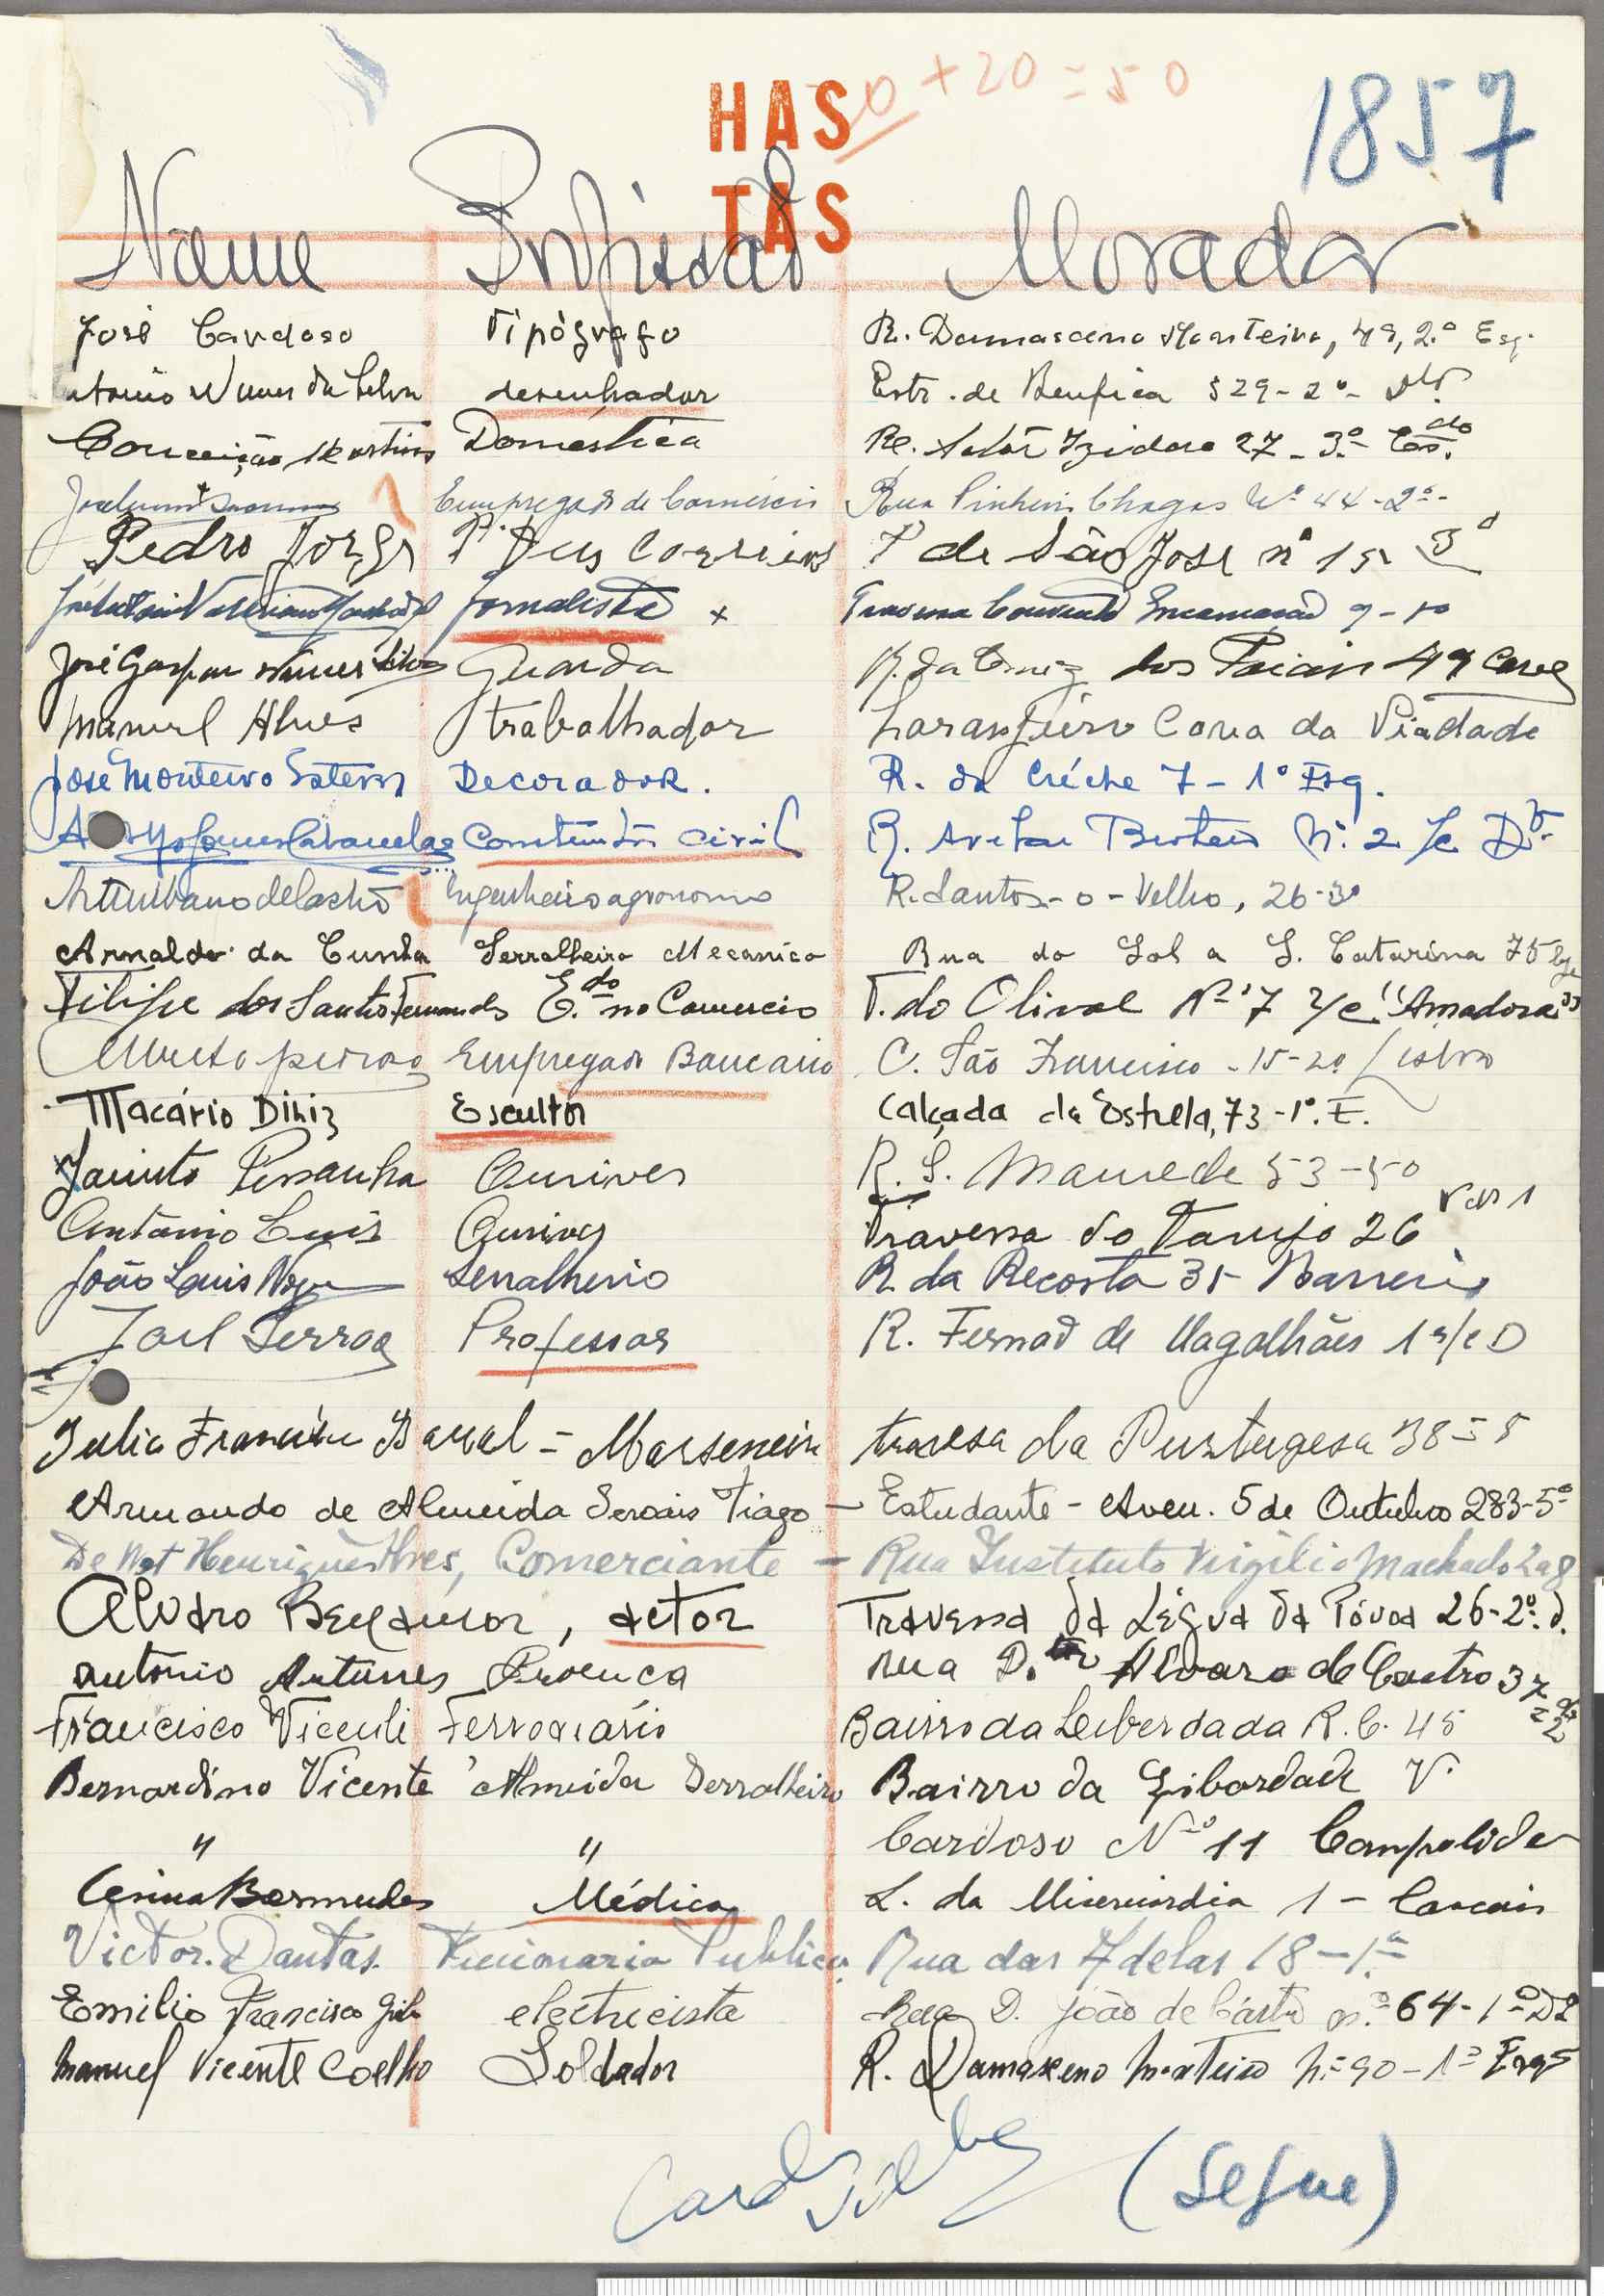 HAS
TAS
0 + 20 = 50
1857
Nome Profissão Morador
José Cardoso Tipógrafo R. Damasceno Monteiro, 49, 2.º Esq.
António Nunes da Silva desenhador Estr. de Benfica 529-2º- Dto.
Conceição Martins Doméstica R. Actor Izidoro 27-3º Esdo.
Empregado de Comércio Rua Pinheiro Chagas Nº 44-2º-
Pedro Jorge T. de São José nº 15 3º
Jornalista x Travessa Convento Encarnação 9-
José Gaspar Nunes Silva Guarda R. da Cruz dos Poiais 49 Cave
Manuel Alves trabalhador Laranjeiro Cova da Piadade
José Monteiro Esteves Decorador. R. da Créche 7-1º Esq.
Construtor civil R. Avelar Brotero Nº 2 /c Dto.
Engenheiro agronomo R. Santos-o-Velho, 26-3º
Arnaldo da Cunha Serralheiro Mecanico Rua do Sol a S. Catarina 75
Filipe dos Santos Fernandes E.do no Comercio T. do Olival Nº 7 r/c "Amadora"
Empregado Bancario C. São Francisco - 15-2º Lisboa
Macário Diniz Escultor Calçada da Estrela, 73-1º. E.
Jacinto Pessanha Ourives R. S. Mamede 53-5º
António Luis Ourives Travessa do Tarujo 26
João Luis Serralheiro R. da Recosta 35 Barreiro
Joel Serrão Professor R. Fernão de Magalhães 1 r/c D
Julio Francisco Barral = Marseneiro travesa da Purtugesa 38=5
Armando de Almeida Serais Tiago - Estudante - Aven. 5 de Outubro 283-5º
Henrique Alves, Comerciante - Rua Instituto Virgílio Machado 2 a 8
Alvaro Benamor, actor Travessa da Légua da Póvoa 26-2º. d.
António Antunes Proenca rua D.tor Alvaro de Castro 37
Francisco Vicente Ferroviário Bairro da Leiberdada R. C. 45
Bernardino Vicente Almeida Serralheiro Bairro da Libardade V.
" " Cardoso Nº 11 Campolide
Cesina Bermudes Médica L. da Misericórdia 1 - Cascais
Victor. Dantas. Funcionario Publico. Rua das Adelas 18-1.º
Emilio Francisco electricista Rua D. João de Castro n.º 64-1º D
Manuel Vicente Coelho Soldador R. Damaxeno Monteiro Nº 90-1º
(Segue)